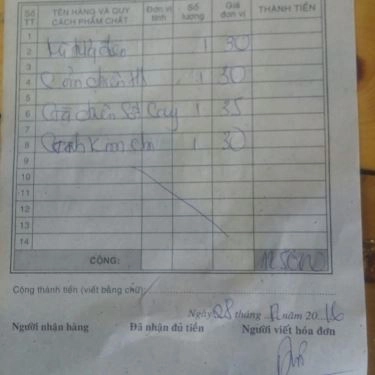 Số TT TÊN HÀNG VÀ QUY CÁCH PHẨM CHẤT Đơn vị tính Số lượng Giá đơn vị THÀNH TIỀN
1
2 1 30
3
4 Cơm chiên 1 30
5
6 Gà chiên Sốt Cay 1 35
7
8 Canh Kim chi 1 30
9
10
11
12
13
14
CỘNG: 125000
Cộng thành tiền (viết bằng chữ):
Ngày 28 tháng 12 năm 20 16
Người nhận hàng Đã nhận đủ tiền Người viết hóa đơn